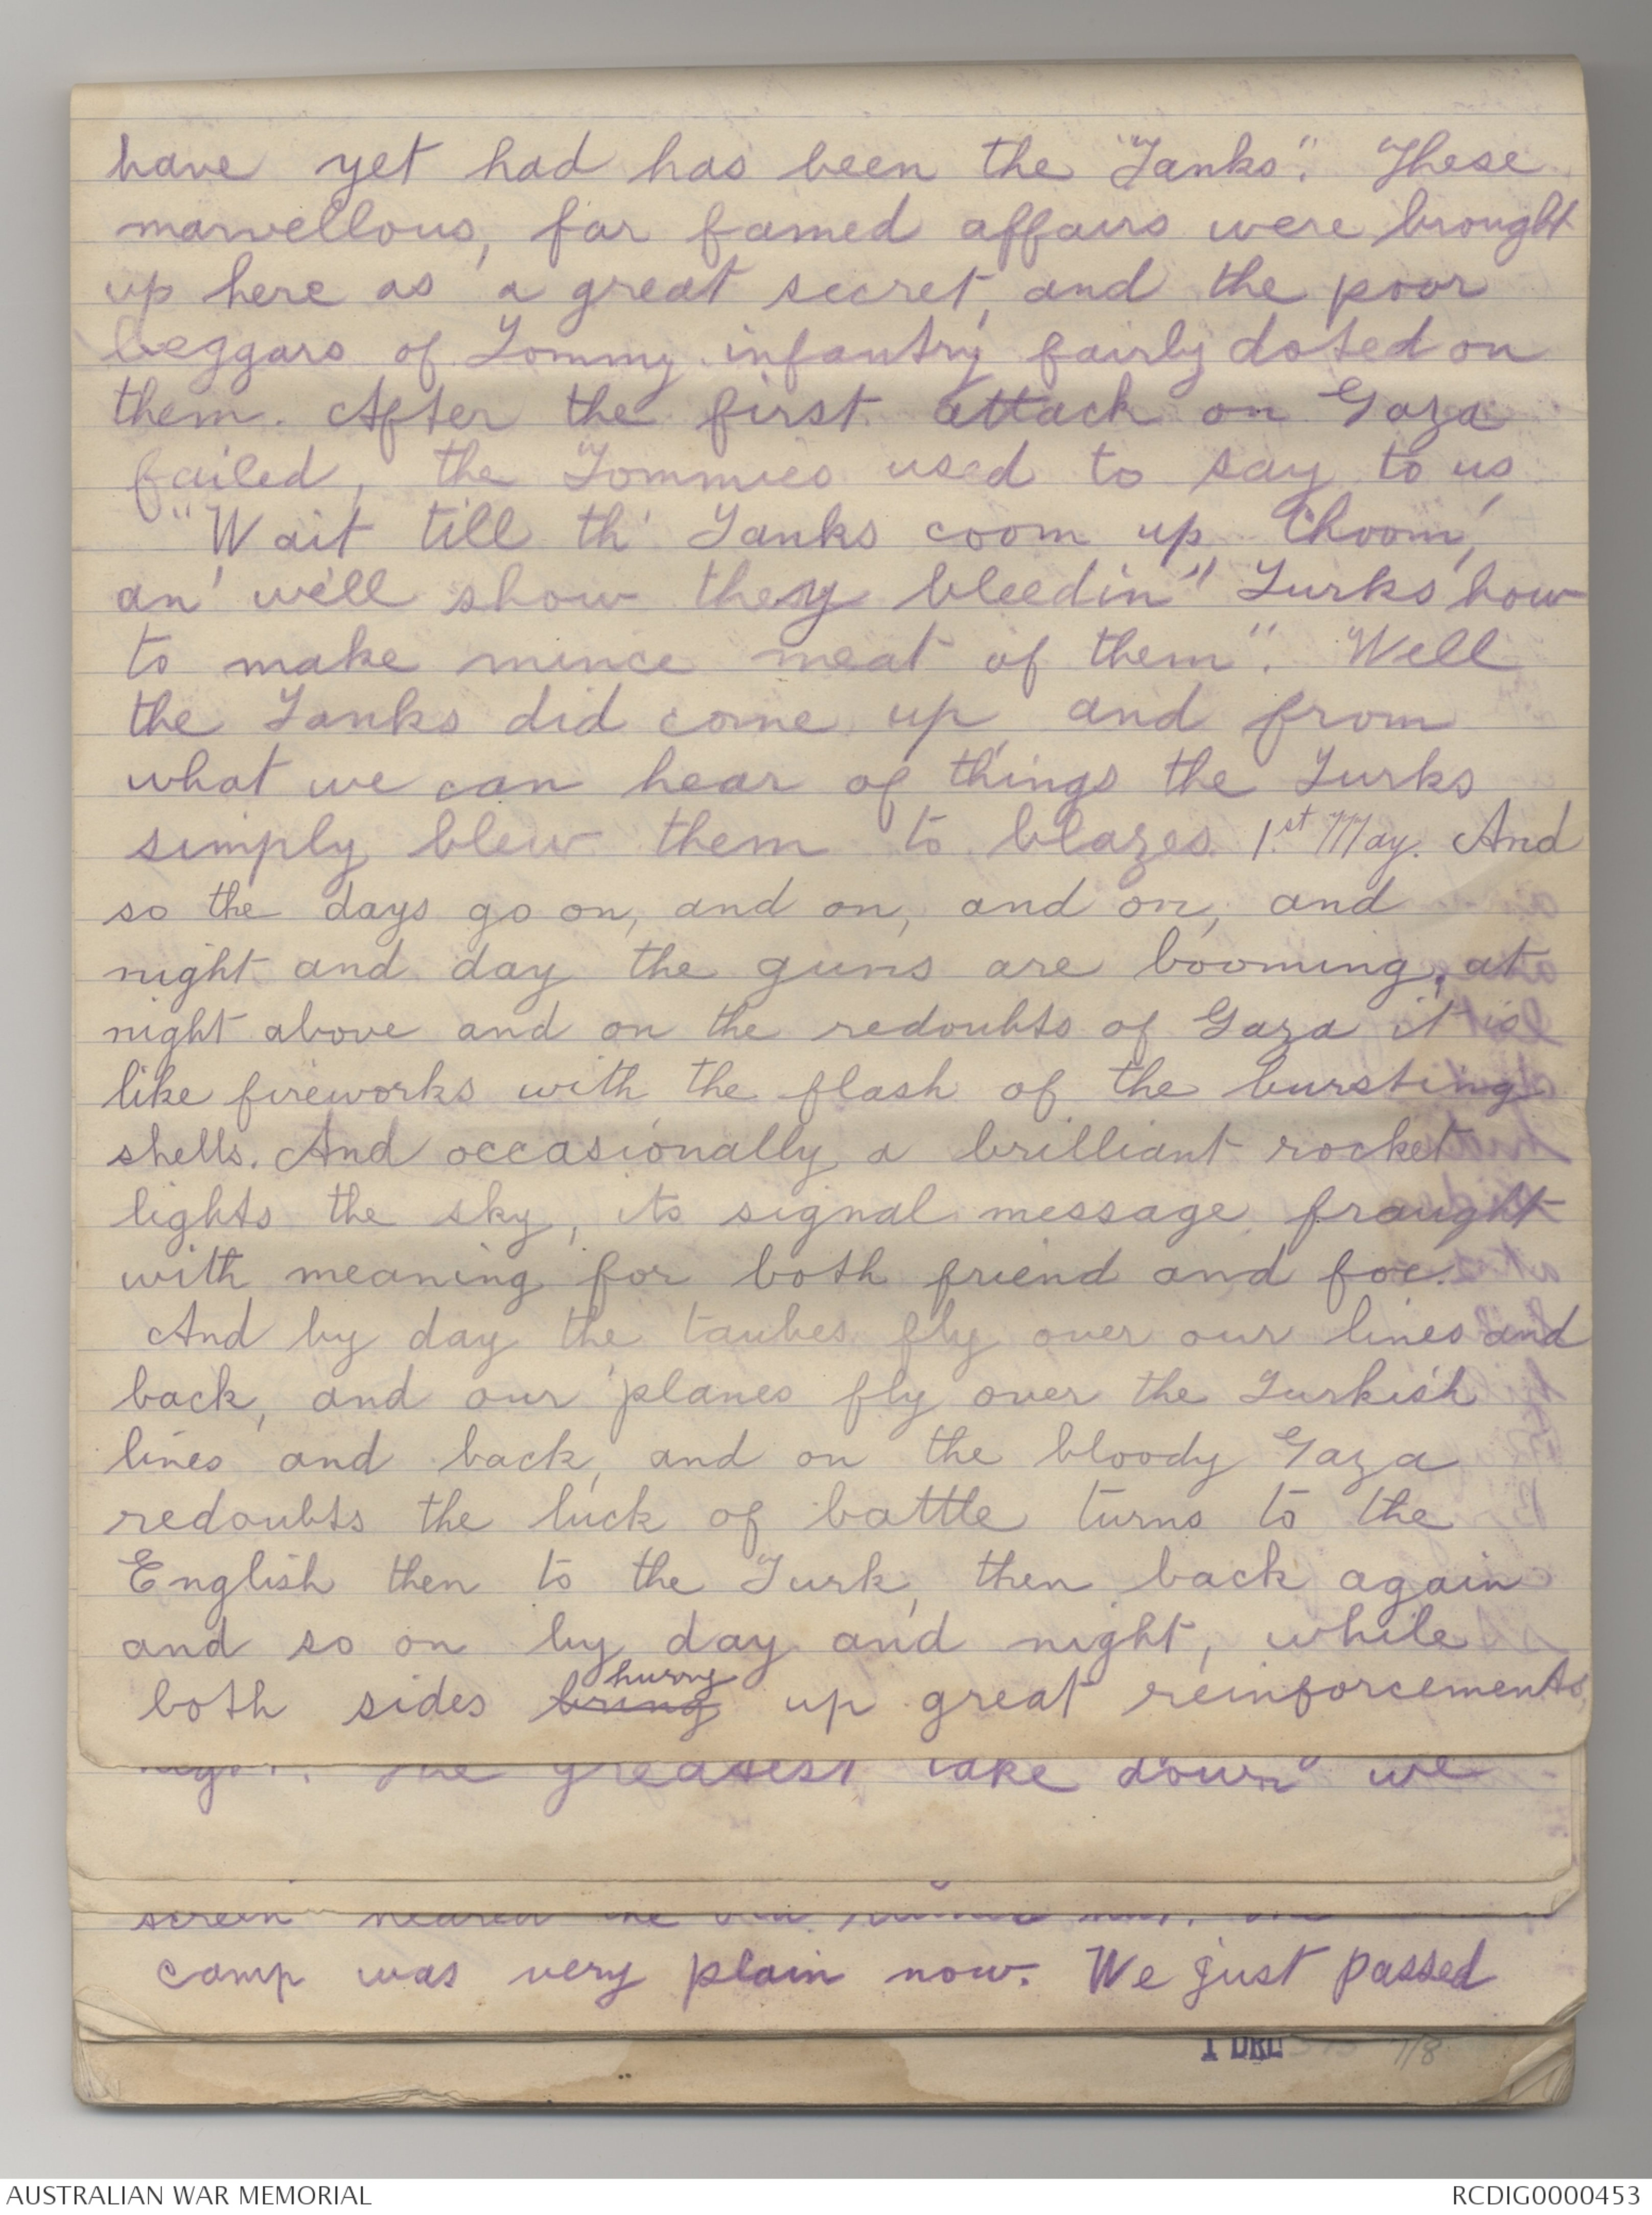 have yet had has been the "Tanks". These
marvellous, far famed affairs were brought
up here as a great secret, and the poor
beggars of Tommy infantry fairly doted on
them. After the first attack on Gaza
failed, the Tommies used to say to us,
"Wait till th' Tanks coom up, Choom,
an' we'll show they bleedin" Turks how
to make mince meat of them". Well
the Tanks did come up, and from
what we can hear of things the Turks
simply blew them to blazes. 1st May. And
so the days go on, and on, and on, and
night and day the guns are booming, at
night above and on the redoubts of Gaza it is
like fireworks with the flash of the bursting
shells. And occasionally a brilliant rocket
lights the sky, its signal message fraught
with meaning for both friend and foe.
And by day the taubes fly over our lines and
back, and our planes fly over the Turkish
lines and back, and on the bloody Gaza
redoubts the luck of battle turns to the
English then to the Turk, then back again
and so on by day and night, while
both sides bring hurry up great reinforcements
The greatest take down we
screen neared the old
camp was very plain now. We just passed
1 DRL 7/8
AUSTRALIAN WAR MEMORIAL
RCDIG0000453